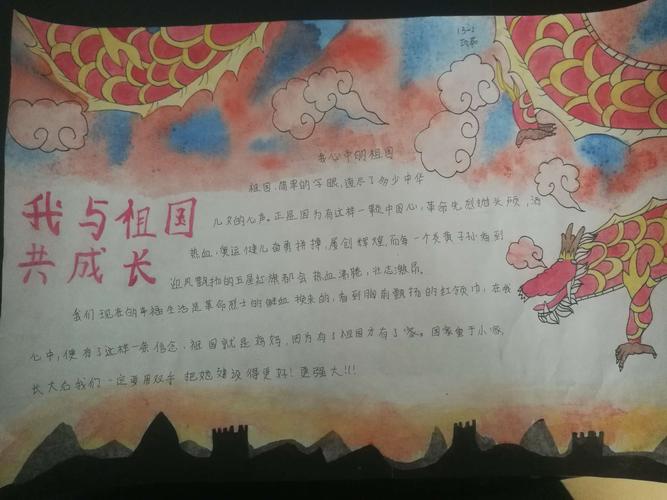 13-2
心中的祖国
祖国,简单的字眼,道尽了多少中华
我与祖国
儿女的心声。正是因为有这样一颗中国心,革命先烈抛头颅,洒
共成长
热血,奥运健儿奋勇拼搏,屡创辉煌,而每一个炎黄子孙看到
迎风飘扬的五星红旗都会热血沸腾,壮志激昂。
我们现在的幸福生活是革命烈士的鲜血换来的,看到胸前飘扬的红领巾,在我
心中,便有了这样一条信念,祖国就是妈妈,因为有了祖国才有了家。国家重于小家,
长大后我们一定要用双手把她建设得更好!更强大!!!